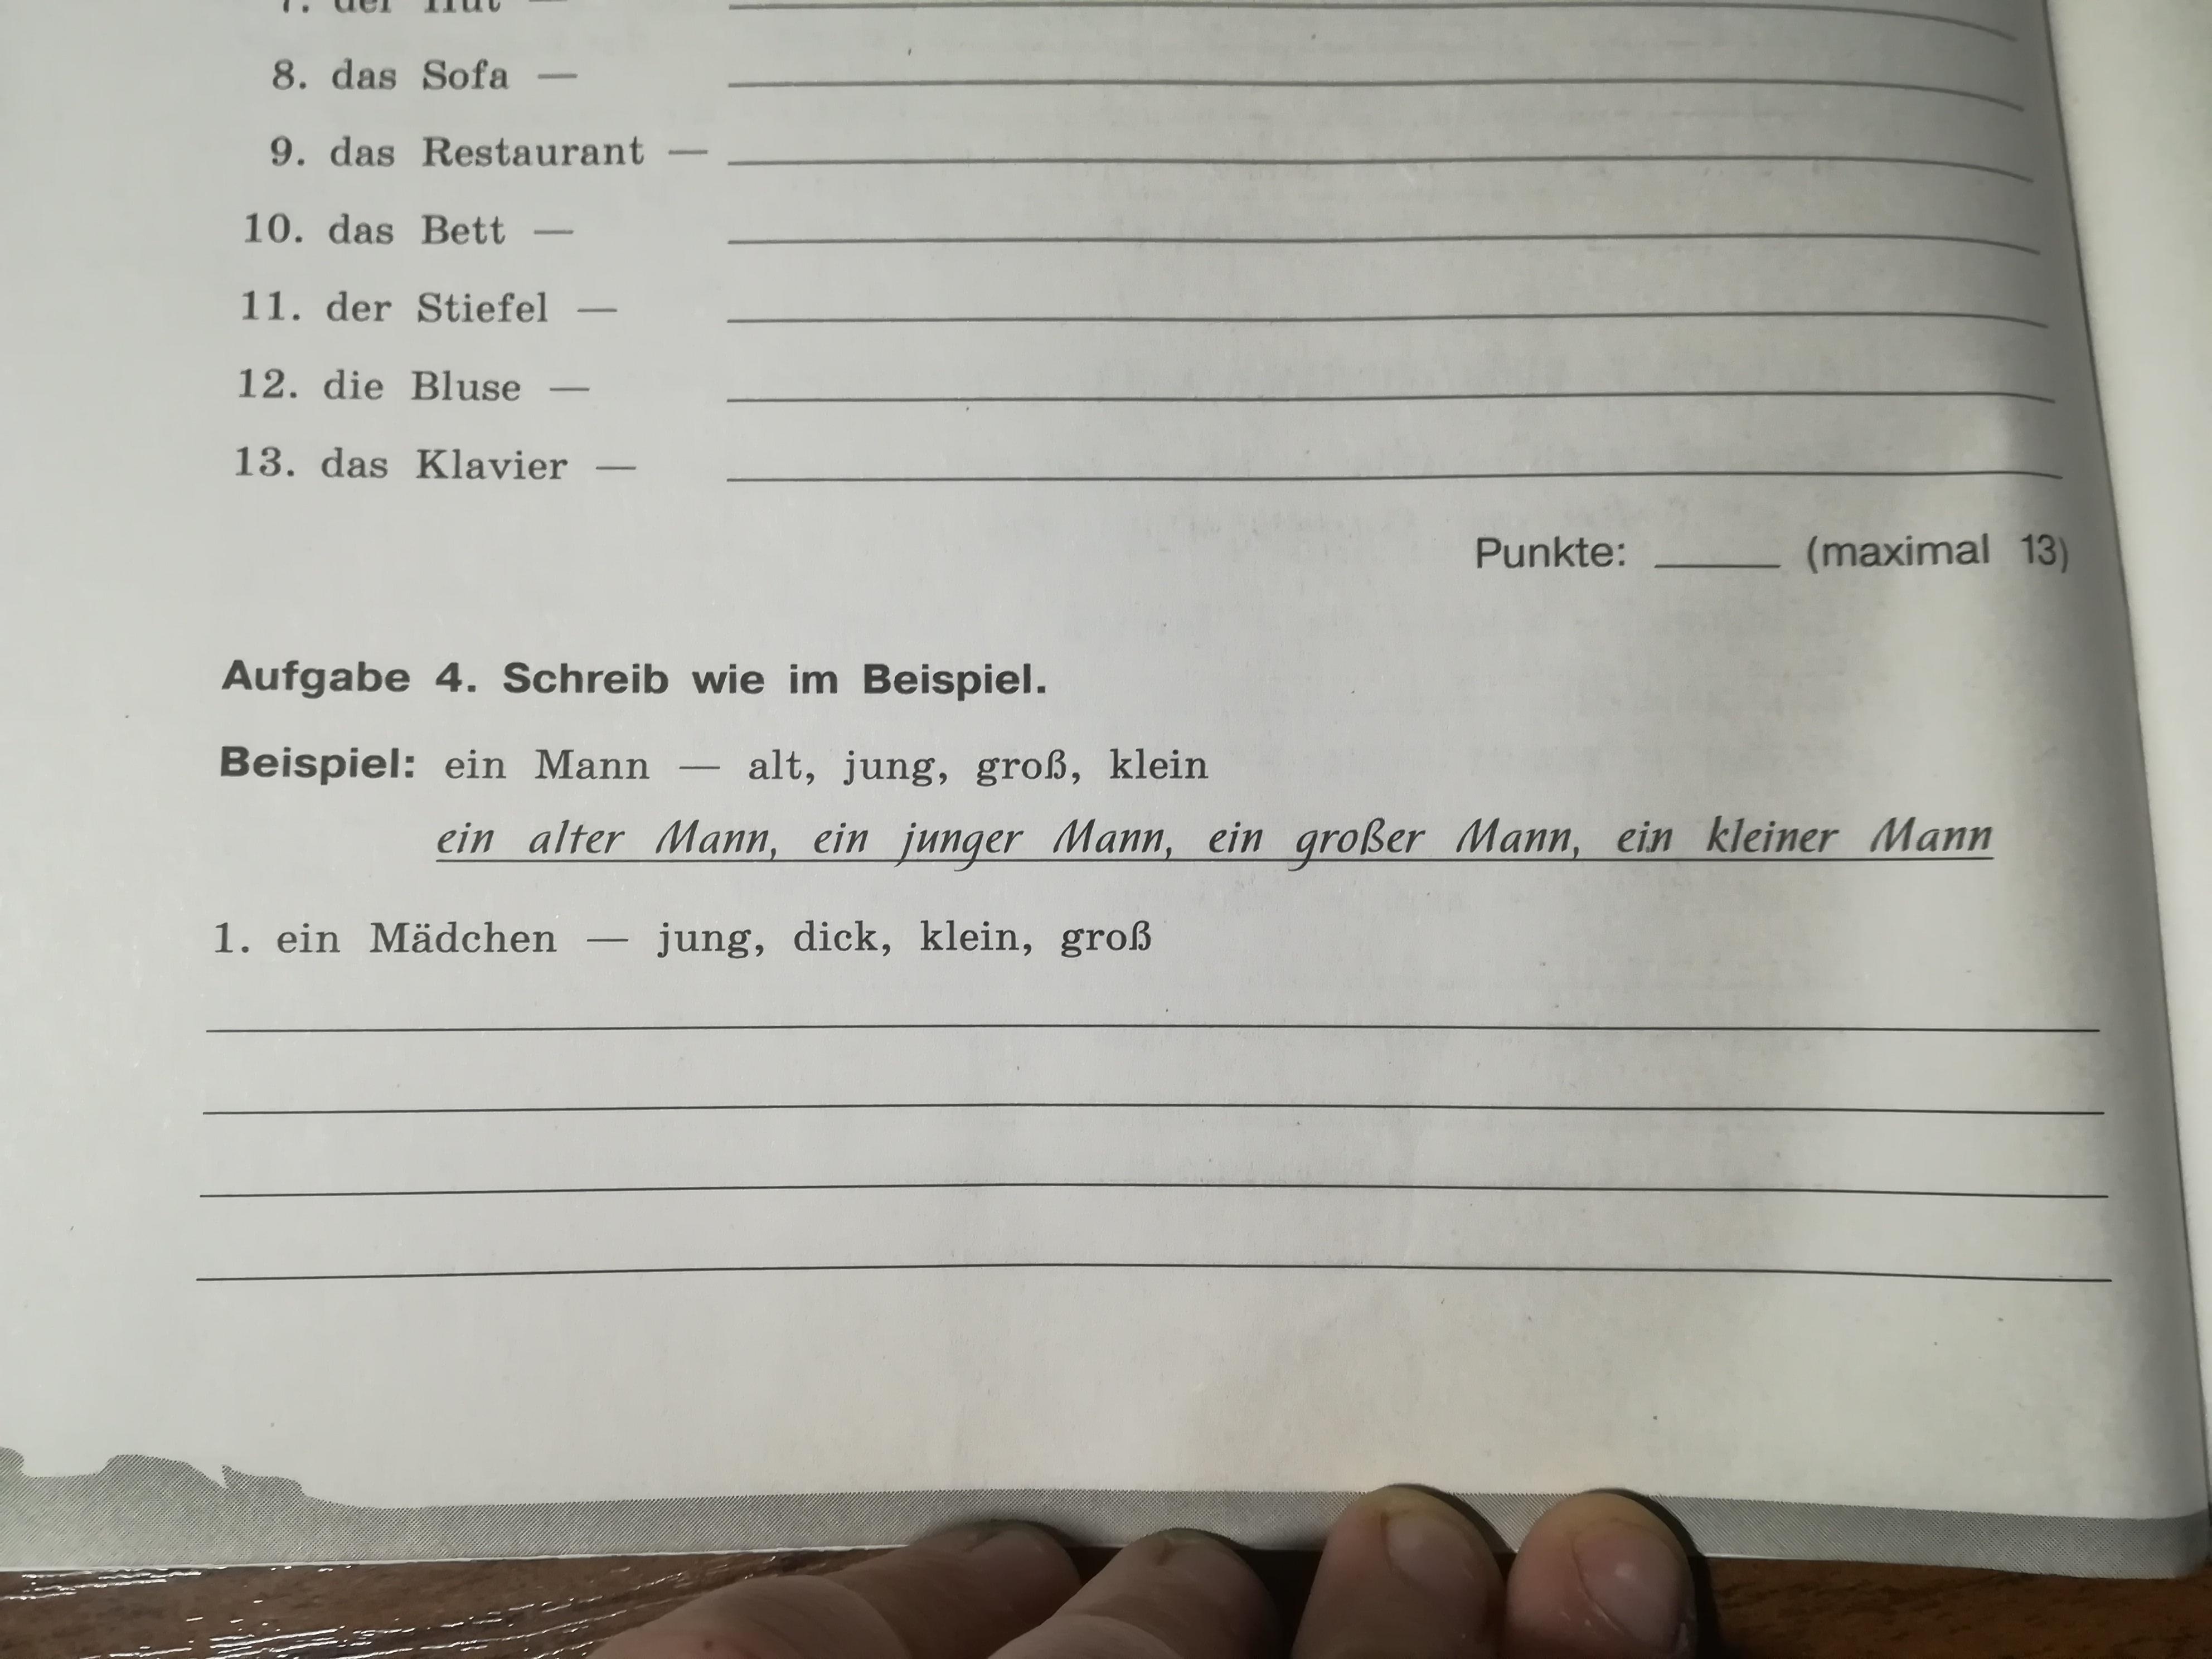 7. der Hut —
8. das Sofa —
9. das Restaurant —
10. das Bett —
11. der Stiefel —
12. die Bluse —
13. das Klavier —
Punkte: _____ (maximal 13)
Aufgabe 4. Schreib wie im Beispiel.
Beispiel: ein Mann — alt, jung, groß, klein
ein alter Mann, ein junger Mann, ein großer Mann, ein kleiner Mann
1. ein Mädchen — jung, dick, klein, groß